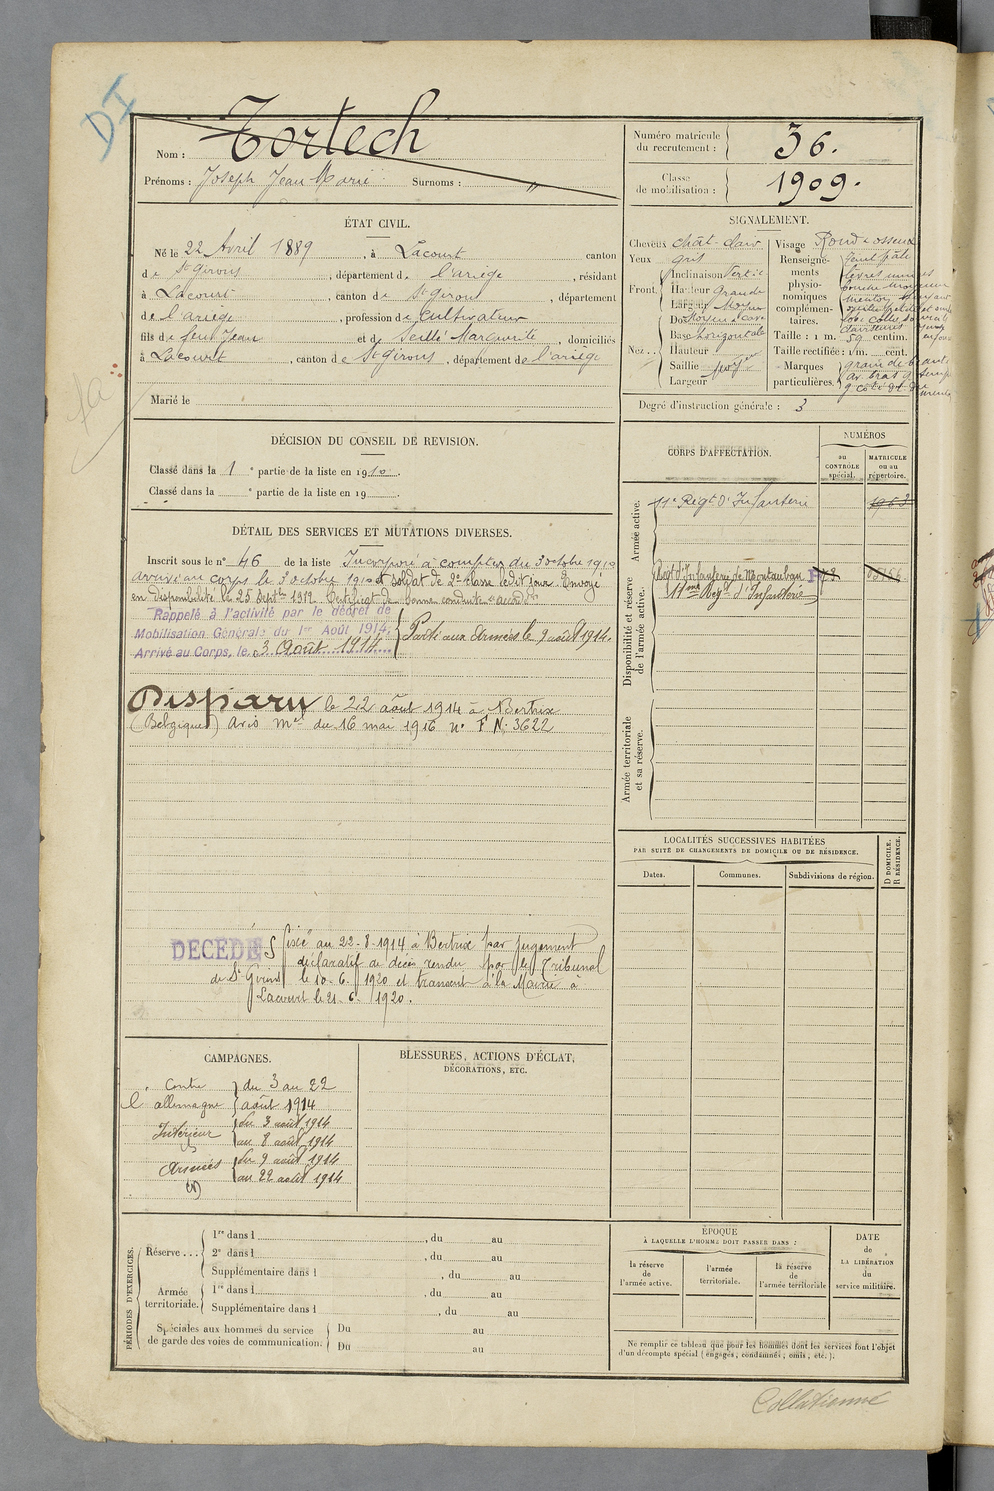 DI
Nom : Tortech
Prénoms : Joseph Jean Marie Surnoms : "
Numéro matricule du recrutement : 36.
Classe de mobilisation : 1909.
ÉTAT CIVIL.
Né le 22 Avril 1889, à Lacourt canton
de St Girons, département de l'ariège, résidant
à Lacourt, canton de St Girons, département
de l'ariège, profession de Cultivateur
fils de feu Jean et de Seillé Marguerite, domiciliés
à Lacourt, canton de St Girons, département de l'ariège
Marié le
SIGNALEMENT.
Cheveux chât-clair
Yeux gris
Front. Inclinaison Vertic
Hauteur Grande
Largeur Moyen
Nez. Dos
Base horizontale
Hauteur
Saillie moyen
Largeur
Visage Rond osseux
Renseignements physionomiques complémentaires.
Taille : 1 m. 59 centim.
Taille rectifiée : 1 m. cent.
Marques particulières. grain de beauté
Degré d'instruction générale : 3
DÉCISION DU CONSEIL DE REVISION.
Classé dans la 1e partie de la liste en 1910.
Classé dans la e partie de la liste en 19
DÉTAIL DES SERVICES ET MUTATIONS DIVERSES.
Inscrit sous le n° 46 de la liste Incorporé à compter du 3 octobre 1910
arrivé au corps le 3 octobre 1910 et soldat de 2e classe ledit jour. Envoyé
en disponibilité le 25 Septbre 1912 Certificat de bonne conduite "accordé"
Rappelé à l'activité par le décret de
Mobilisation Générale du 1er Août 1914.
Arrivé au Corps, le 3 Août 1914
Parti aux armées le 9 août 1914.
Disparu le 22 août 1914 à Bertrix
(Belgique) Avis mel du 16 mai 1916 n° F N; 3622
DECEDE
fixé au 22-8-1914 à Bertrix par jugement
déclaratif de décès rendu par le Tribunal
de St Girons le 10-6-1920 et transcrit à la Mairie à
Lacourt le 21-6-1920.
CORPS D'AFFECTATION.
NUMÉROS
au CONTRÔLE spécial.
MATRICULE ou au répertoire.
Armée active.
11e Régt d'Infanterie
Disponibilité et réserve de l'armée active.
Regt d'Infanterie de Montauban
11eme Reg't d'Infanterie
Armée territoriale et sa réserve.
LOCALITÉS SUCCESSIVES HABITÉES
PAR SUITE DE CHANGEMENTS DE DOMICILE OU DE RÉSIDENCE.
Dates.
Communes.
Subdivisions de région.
D DOMICILE.
R RÉSIDENCE.
CAMPAGNES.
Contre l'allemagne du 3 au 22 août 1914
Intérieur du 3 août 1914
au 8 août 1914
Armées du 9 août 1914
au 22 août 1914
BLESSURES, ACTIONS D'ÉCLAT,
DÉCORATIONS, ETC.
PÉRIODES D'EXERCICES.
Réserve ...
1re dans l , du au
2e dans l , du au
Supplémentaire dans l , du au
Armée territoriale.
1re dans l , du au
Supplémentaire dans l , du au
Spéciales aux hommes du service
de garde des voies de communication.
Du au
Du au
ÉPOQUE
À LAQUELLE L'HOMME DOIT PASSER DANS :
la réserve de l'armée active.
l'armée territoriale.
la réserve de l'armée territoriale
DATE de LA LIBÉRATION du service militaire.
Ne remplir ce tableau que pour les hommes dont les services font l'objet
d'un décompte spécial (engagés, condamnés, omis, etc.).
Collationné